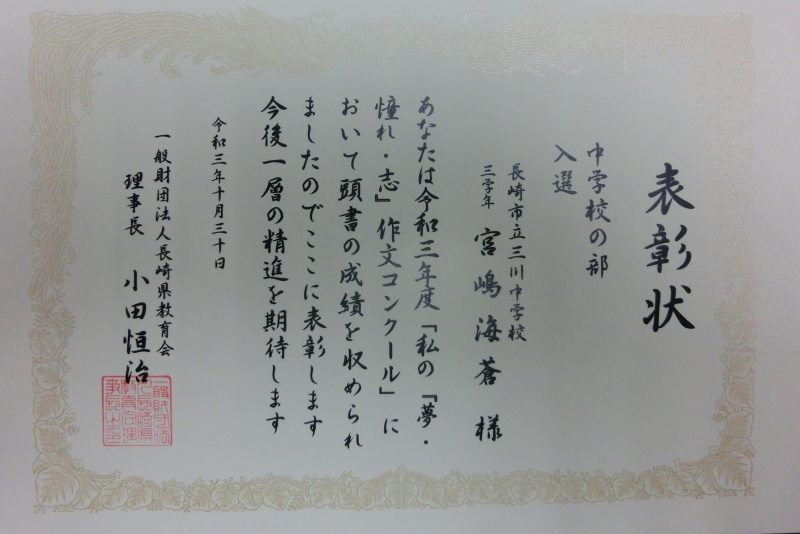 表彰状
中学校の部
入選
長崎市立三川中学校
三学年 宮嶋海蒼 様
あなたは令和三年度「私の『夢・
憧れ・志』作文コンクール」に
おいて頭書の成績を収められ
ましたのでここに表彰します
今後一層の精進を期待します
令和三年十月三十日
一般財団法人長崎県教育会
理事長 小田恒治